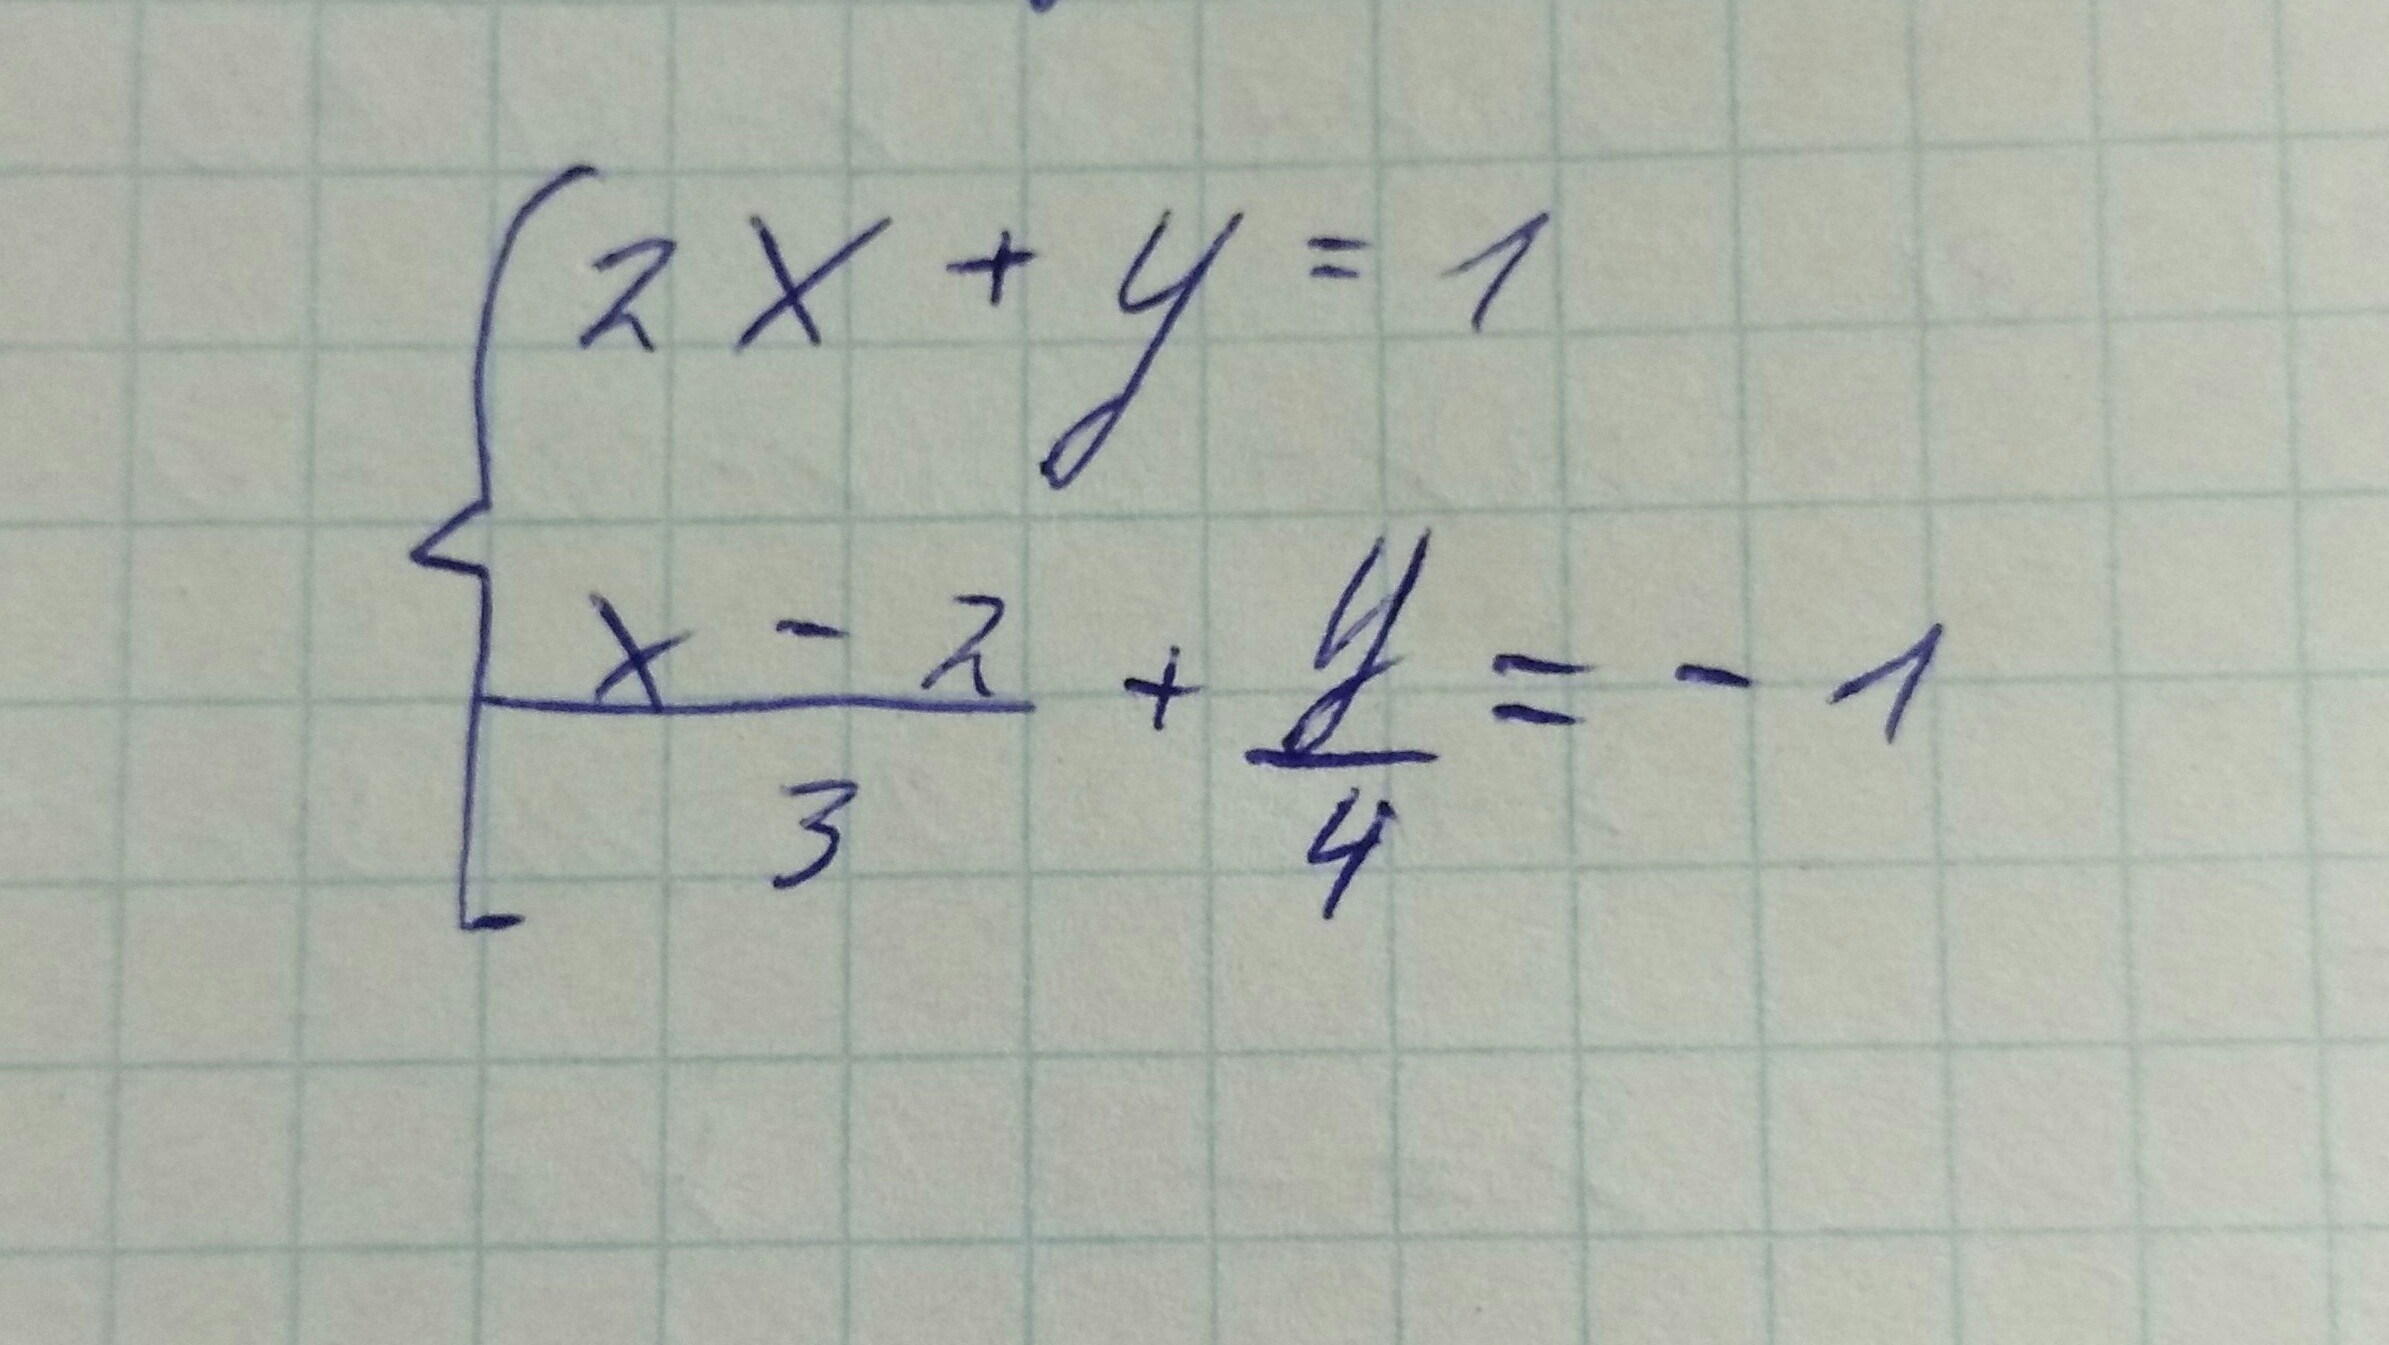 2x + y = 1
x - 2 / 3 + y / 4 = - 1